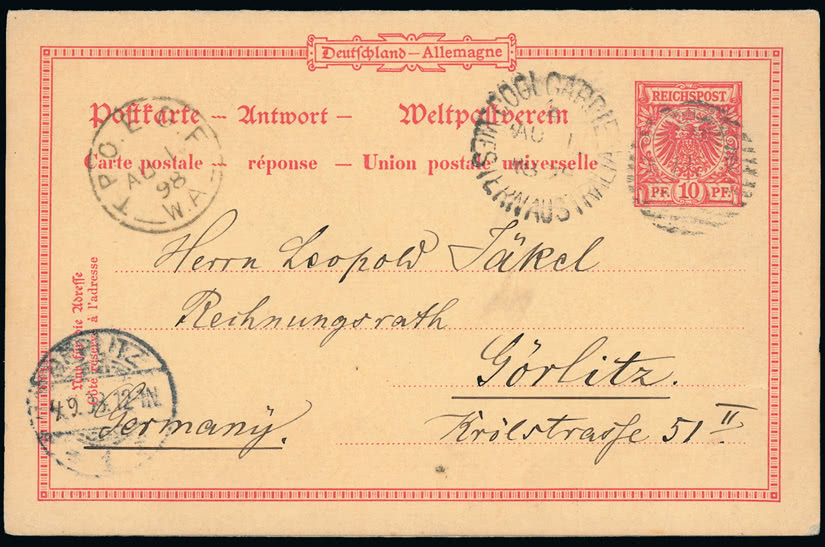 Deutschland – Allemagne
REICHSPOST
10
PF. PF.
Postkarte – Antwort – Weltpostverein
Carte postale – réponse – Union postale universelle
COOLGARDIE
AU 1
WESTERN AUSTRALIA
T.P.O. E.G.F.
AU 1
98
W.A.
Herrn Leopold Jäkel
Rechnungsrath
Görlitz.
Krölstrasse 51 II
Germany.
Nur für die Adresse
Côté réservé à l'adresse
GÖRLITZ
4.9.98. 12-1N
1